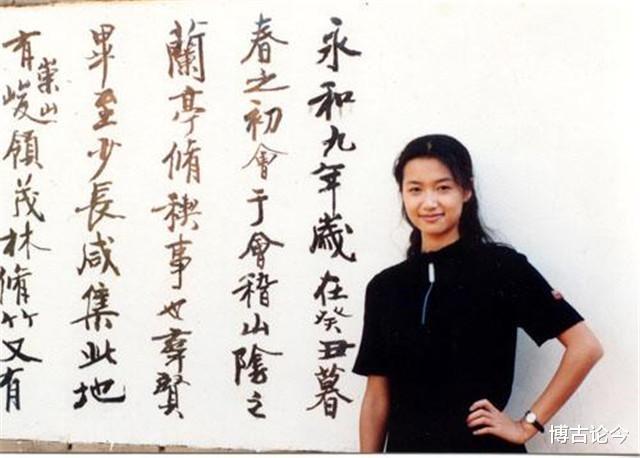 永和九年歲在癸丑暮
春之初會于會稽山陰之
蘭亭脩稧事也羣賢
畢至少長咸集此地
有崇山峻領茂林脩竹又有
博古论今